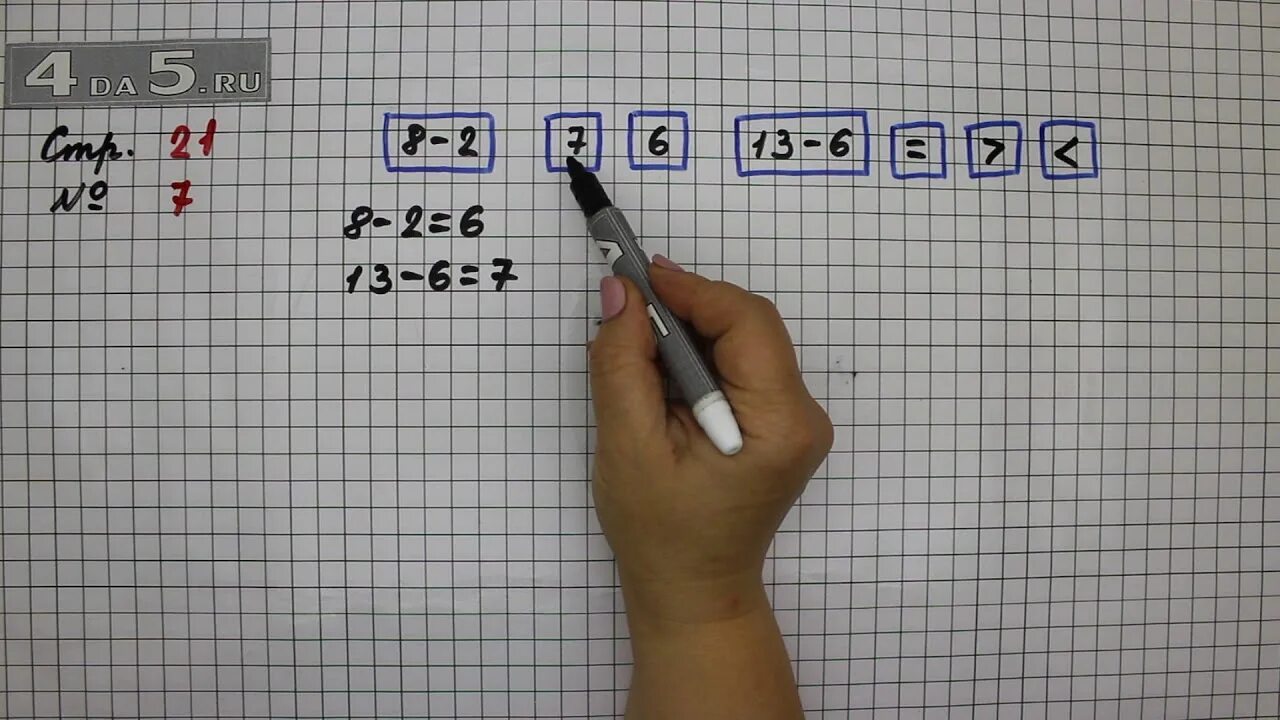 4 DA 5.RU
Стр. 21
№ 7
8-2 7 6 13-6 = > <
8-2=6
13-6=7